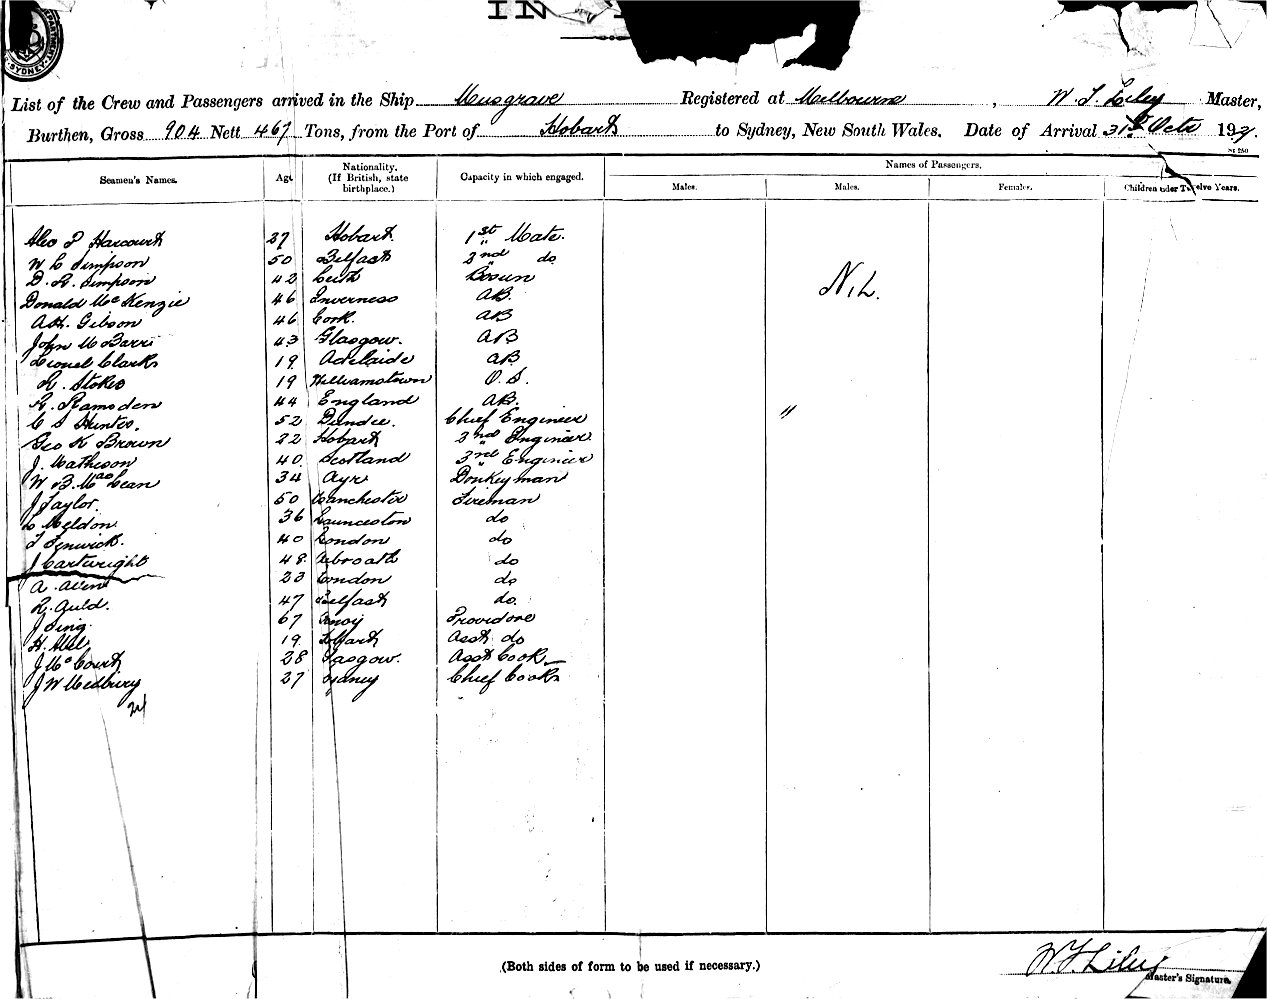 IN
SYDNEY
List of the Crew and Passengers arrived in the Ship Musgrave Registered at Melbourne, W. J. Liley Master,
Burthen, Gross 904 Nett 467 Tons, from the Port of Hobart to Sydney, New South Wales. Date of Arrival 31st Octr 192
Names of Passengers.
Seamen's Names. Age Nationality. (If British, state birthplace.) Capacity in which engaged. Males. Males. Females. Children under Twelve Years.
Harcourt 37 Hobart. 1st Mate.
W. C. Simpson 50 Belfast 2nd do
D. R. Simpson 42 Leith Bosun
NiL.
Donald McKenzie 46 Inverness AB.
A.H. Gibson 46 Cork. AB
John McBarr 43 Glasgow. AB
Lionel Clark 19 Adelaide AB
R. Stokes 19 Williamstown O.S.
R. Ramsden 44 England AB. "
C S Hunter. 52 Dundee. Chief Engineer
Geo K Brown 22 Hobart 2nd Engineer
J. Matheson 40 Scotland 3rd Engineer
W B. MacLean 34 Ayr Donkeyman
J Taylor. 50 Manchester Fireman
Meldon 36 Launceston do
T Fenwick. 40 London do
J Cartwright 48 Arbroath do
A. 23 London do
R. Auld. 47 Belfast do.
J Sing 67 Amoy Providore
H. 19 Hobart Asst do
J McCourt 28 Glasgow. Asst Cook
J W Medbury 27 Sydney Chief Cook
24
(Both sides of form to be used if necessary.)
W. J. Liley
Master's Signature.